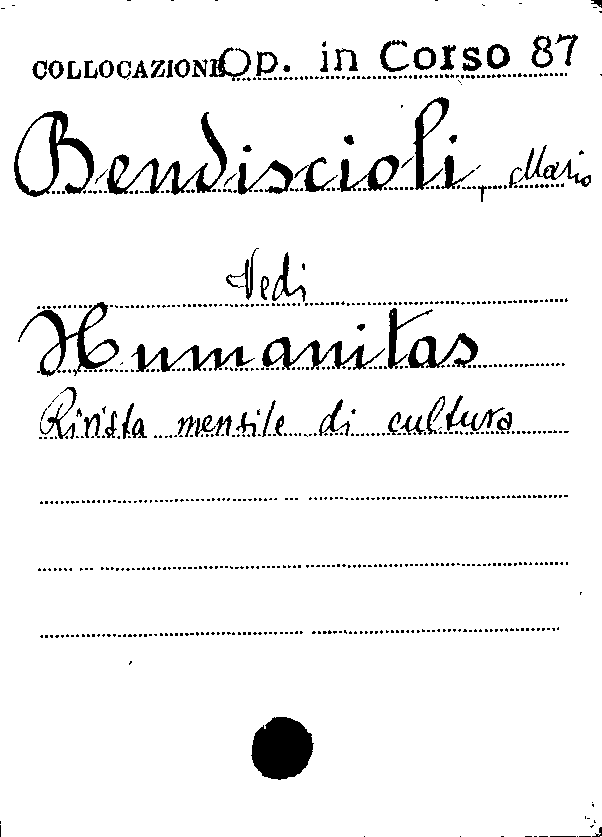 COLLOCAZIONE Op. in Corso 87
Bendiscioli, Mario
Vedi
Humanitas
Rivista mensile di cultura